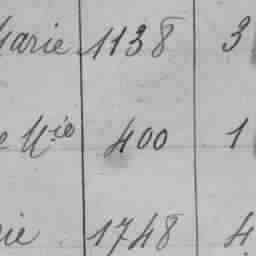 Marie 1138 3
e Mie 400 1
rie 1748 4